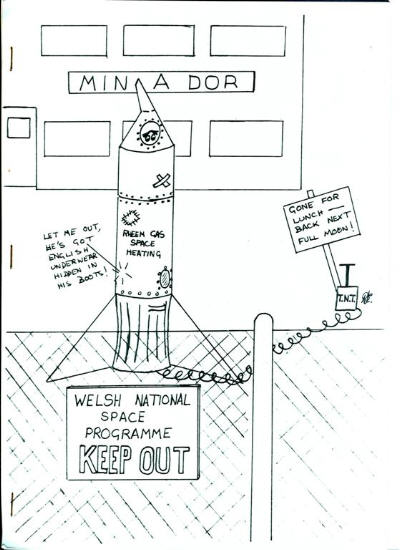 MIN A DOR
GONE FOR
LUNCH —
BACK NEXT
FULL MOON!
LET ME OUT,
HE'S GOT
ENGLISH
UNDERWEAR
HIDDEN IN
HIS BOOTS!
RHEEM GAS
SPACE
HEATING
T.N.T.
WELSH NATIONAL
SPACE
PROGRAMME
KEEP OUT